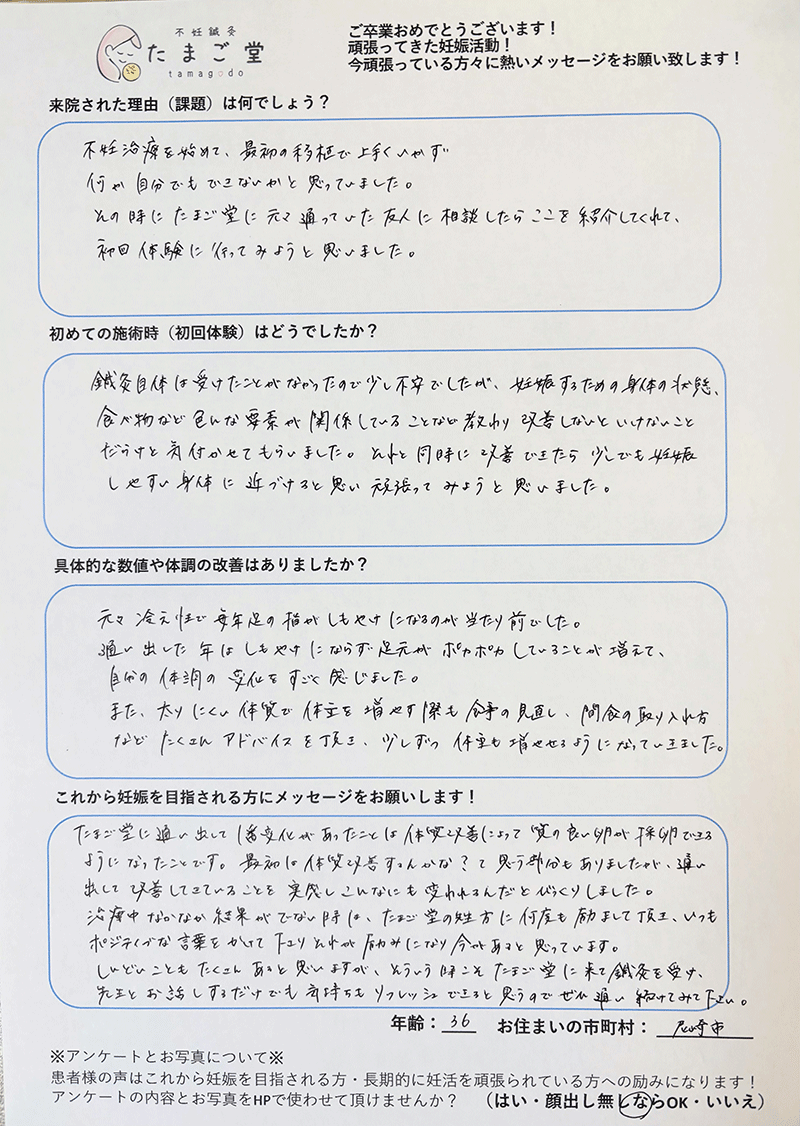 不妊鍼灸
たまご堂
tamagodo
ご卒業おめでとうございます！
頑張ってきた妊娠活動！
今頑張っている方々に熱いメッセージをお願い致します！
来院された理由（課題）は何でしょう？
不妊治療を始めて、最初の移植で上手くいかず
何か自分でもできないかと思っていました。
その時にたまご堂に元々通っていた友人に相談したらここを紹介してくれて、
初回体験に行ってみようと思いました。
初めての施術時（初回体験）はどうでしたか？
鍼灸自体は受けたことがなかったので少し不安でしたが、妊娠するための身体の状態、
食べ物など色んな要素が関係していることなど教わり改善しないといけないこと
だらけと気付かせてもらいました。それと同時に改善できたら少しでも妊娠
しやすい身体に近づけると思い頑張ってみようと思いました。
具体的な数値や体調の改善はありましたか？
元々冷え性で毎年足の指がしもやけになるのが当たり前でした。
通い出した年はしもやけにならず足元がポカポカしていることが増えて、
自分の体調の変化をすごく感じました。
また、太りにくい体質で体重を増やす際も食事の見直し、間食の取り入れ方
などたくさんアドバイスを頂き、少しずつ体重も増やせるようになっていきました。
これから妊娠を目指される方にメッセージをお願いします！
たまご堂に通い出して1番変化があったことは体質改善によって質の良い卵が採卵できる
ようになったことです。最初は体質改善するんかな？て思う部分もありましたが、通い
出して改善してきていることを実感しこんなにも変われるんだとびっくりしました。
治療中なかなか結果がでない時は、たまご堂の先生方に何度も励まして頂き、いつも
ポジティブな言葉をかけて下さりそれが励みになり今があると思っています。
しんどいこともたくさんあると思いますが、そういう時こそたまご堂に来て鍼灸を受け、
先生とお話しするだけでも気持ちもリフレッシュできると思うのでぜひ通い続けてみて下さい。
年齢：36 お住まいの市町村：尼崎市
※アンケートとお写真について※
患者様の声はこれから妊娠を目指される方・長期的に妊活を頑張られている方への励みになります！
アンケートの内容とお写真をHPで使わせて頂けませんか？ （はい・顔出し無しならOK・いいえ）